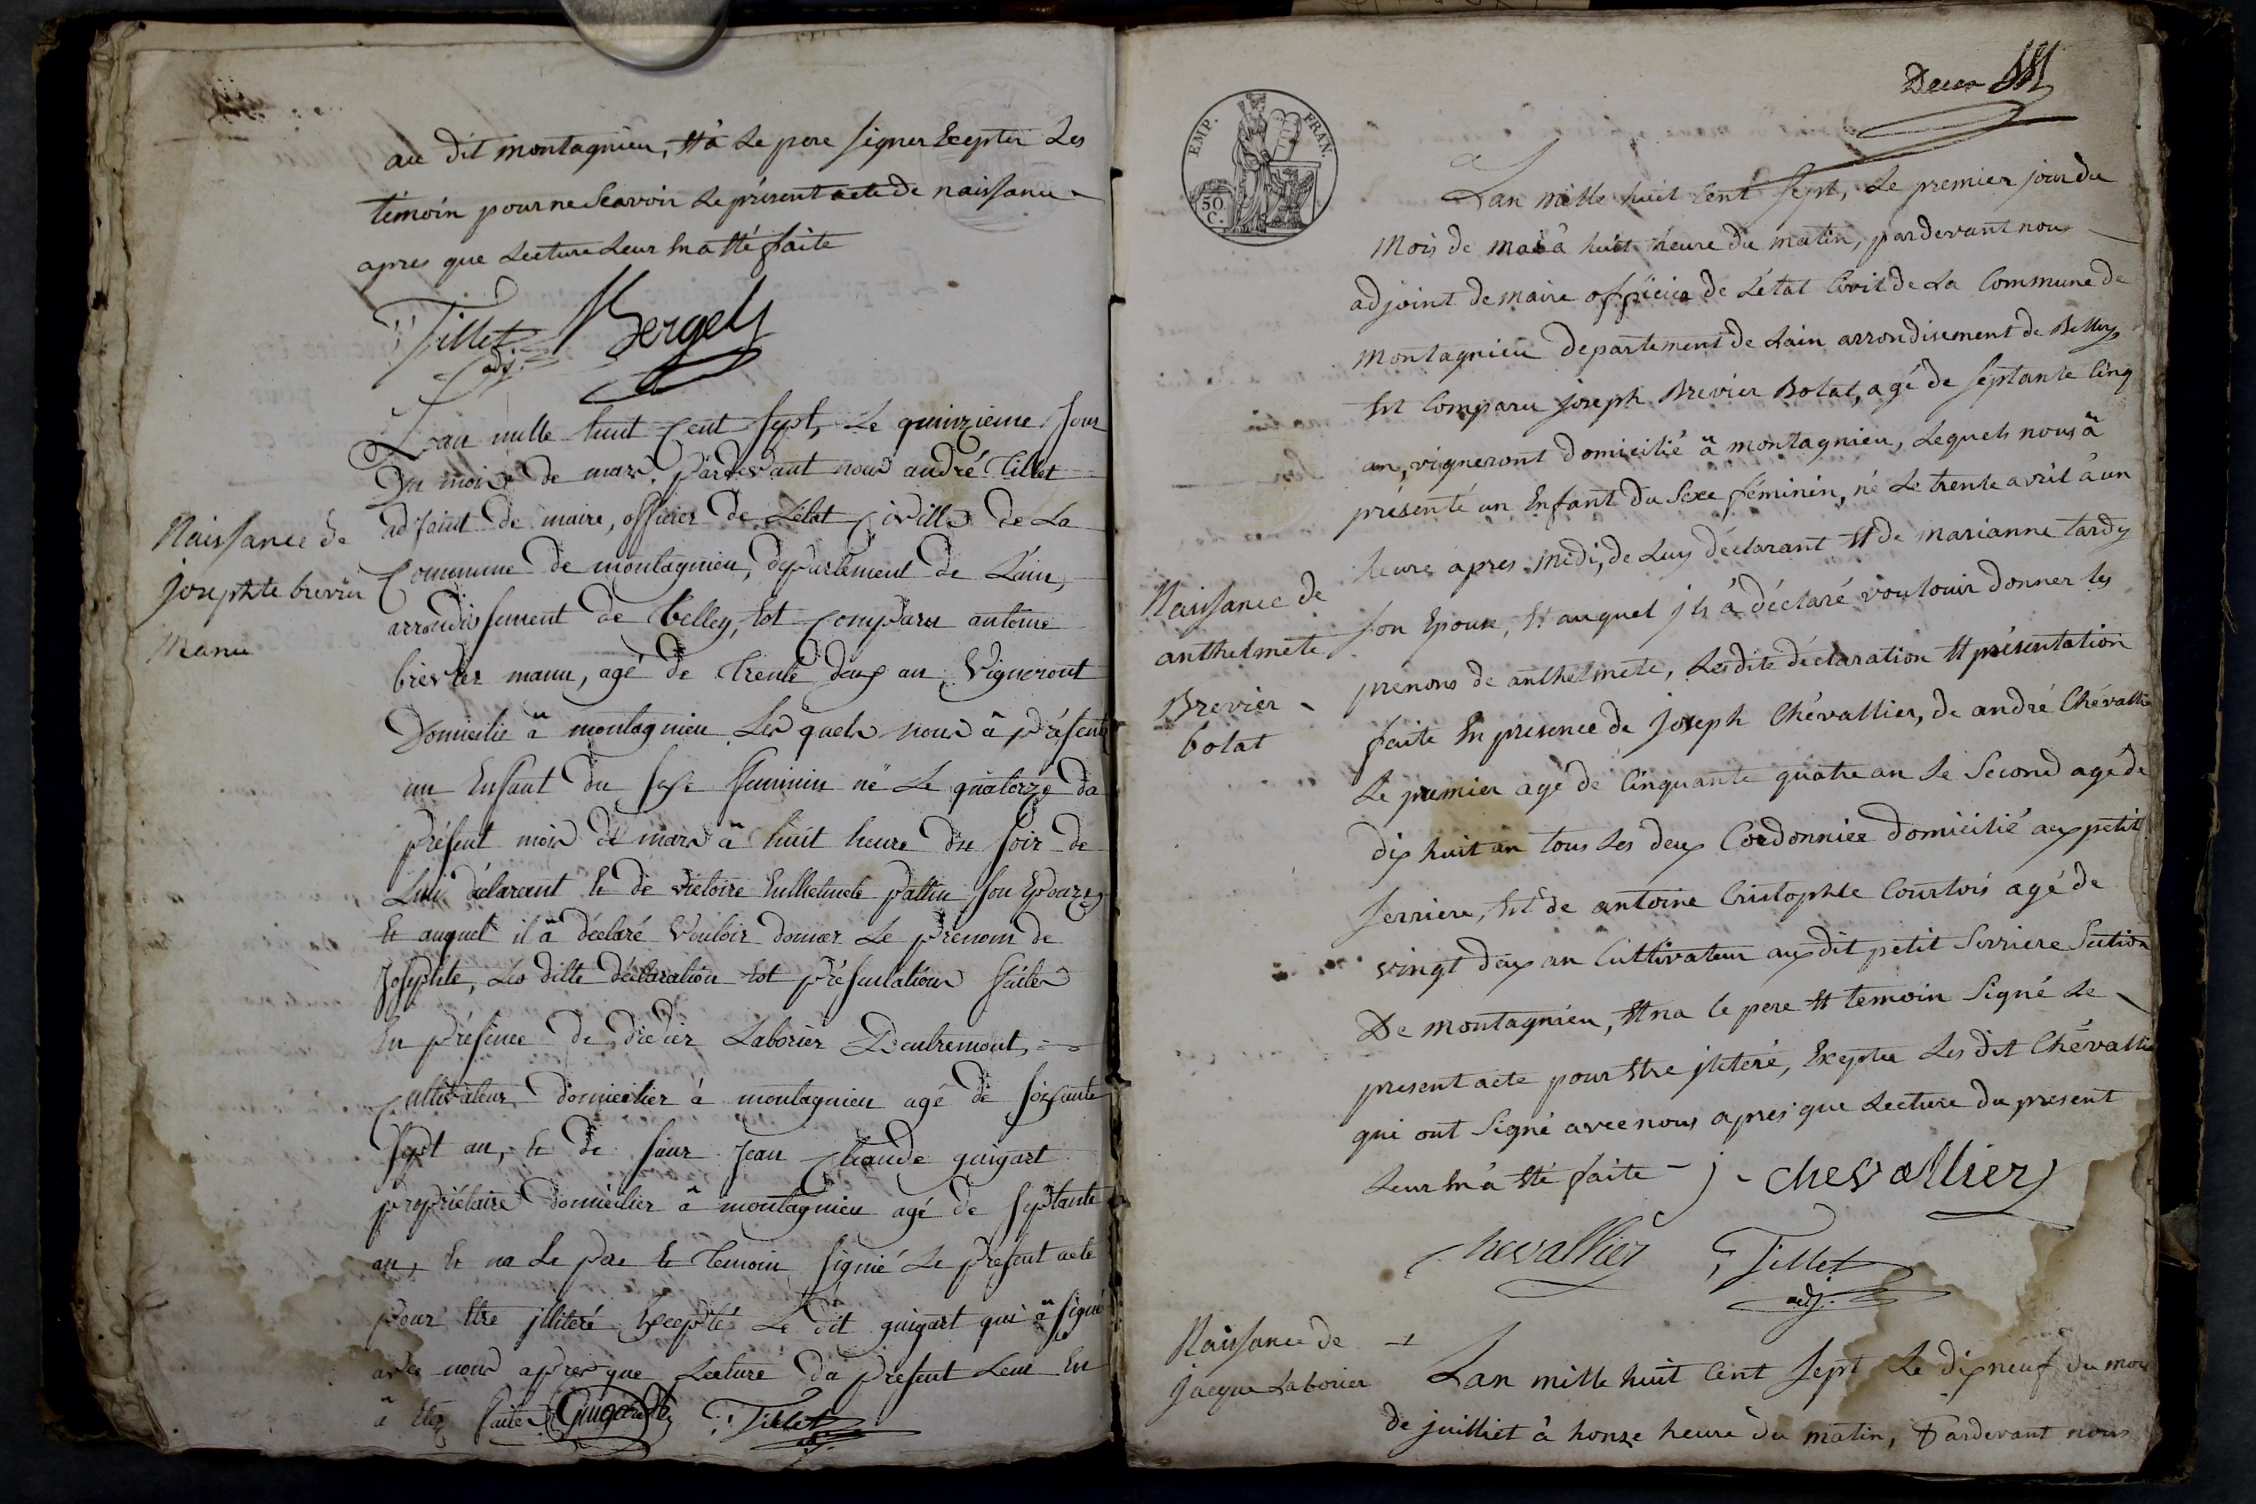 au dit montagnieu, Et à Le pere Signer Excepter Les
témoin pour ne Scavoir Le présent acte de naissance
apres que Lecture Leur En a Eté faite
Tillet adj. Bergely
L'an mille huit Cent Sept, Le quinzieme Jour
Du mois de mars, Pardevant nous andré Tillet
adjoint de maire, officier de L'état Civille de La
Commune de montagnieu, département de L'ain,
arrondissement de belley, Est Comparu antoine
Naissance de
Josephte brevier
Manu
brevier manu, agé de trente deux an Vigneront
Domicilié à montagnieu Les quels nous à présenté
un Enfant du Sexe feminin né Le quatorze du
présent mois de mars à huit heure du Soir de
Lui déclarant Et de victoire Enthelmete pattin Son Epouze
Et auquel il à déclaré Vouloir donner Le prenom de
Josephte, Les ditte déclaration Est présentation faites
En présence de didier Laborier Dentremont,
Cultivateur domicilier à montagnieu agé de Soixante
Sept an, Et de Sieur Jean Claude guigart
propriétaire domicilier à montagnieu agé de Septante
an, Et na Le pere Et temoin Signié Le présent acte
pour Etre jlliteré Excepté Le dit guigart qui à Signé
avec nous apres que Lecture du présent Leur En
à Eté faite Guigard Tillet adj.
50 C.
EMP. FRAN.
Deux
L'an mille huit Cent Sept, Le premier jour du
Mois de mai à huit heure du matin, pardevant nous
adjoint de maire officier de L'état Civil de La Commune de
Montagnieu departement de Lain arrondisement de Belley
Est Comparu joseph Brevier Bolat, agé de Septante Cinq
an, vigneront domicilié à montagnieu, Lequels nous à
présenté un Enfant du Sexe féminin, né Le trente avril à un
heure apres midi, de Luy déclarant Et de marianne tardy
Naissance de
anthelmete
Brevier
bolat
Son Epouse, Et auquel jls à déclaré vouloir donner les
prenons de anthelmete, Lesdite déclaration Et présentation
faite En presence de Joseph Chévallier, de andré Chévallier
Le premier agé de Cinquante quatre an Le Second agé de
dix huit an tous Les deux Cordonnier domicilié aux petit
Serriere, Et de antoine Cristophle Courtois agé de
vingt deux an Cultivateur aux dit petit Serriere Section
De montagnieu, Et na le pere Et temoin Signé Le
present acte pour Etre jlitéré, Exeptée Les dit Chévallier
qui ont Signé avec nous apres que Lecture du present
Leur En à Eté faite - j - chevallier
chevallier Tillet adj.
Naissance de
jacque Laborier
Lan mille huit Cent Sept Le dix neuf du mois
de juilliet à honze heure du matin, Pardevant nous